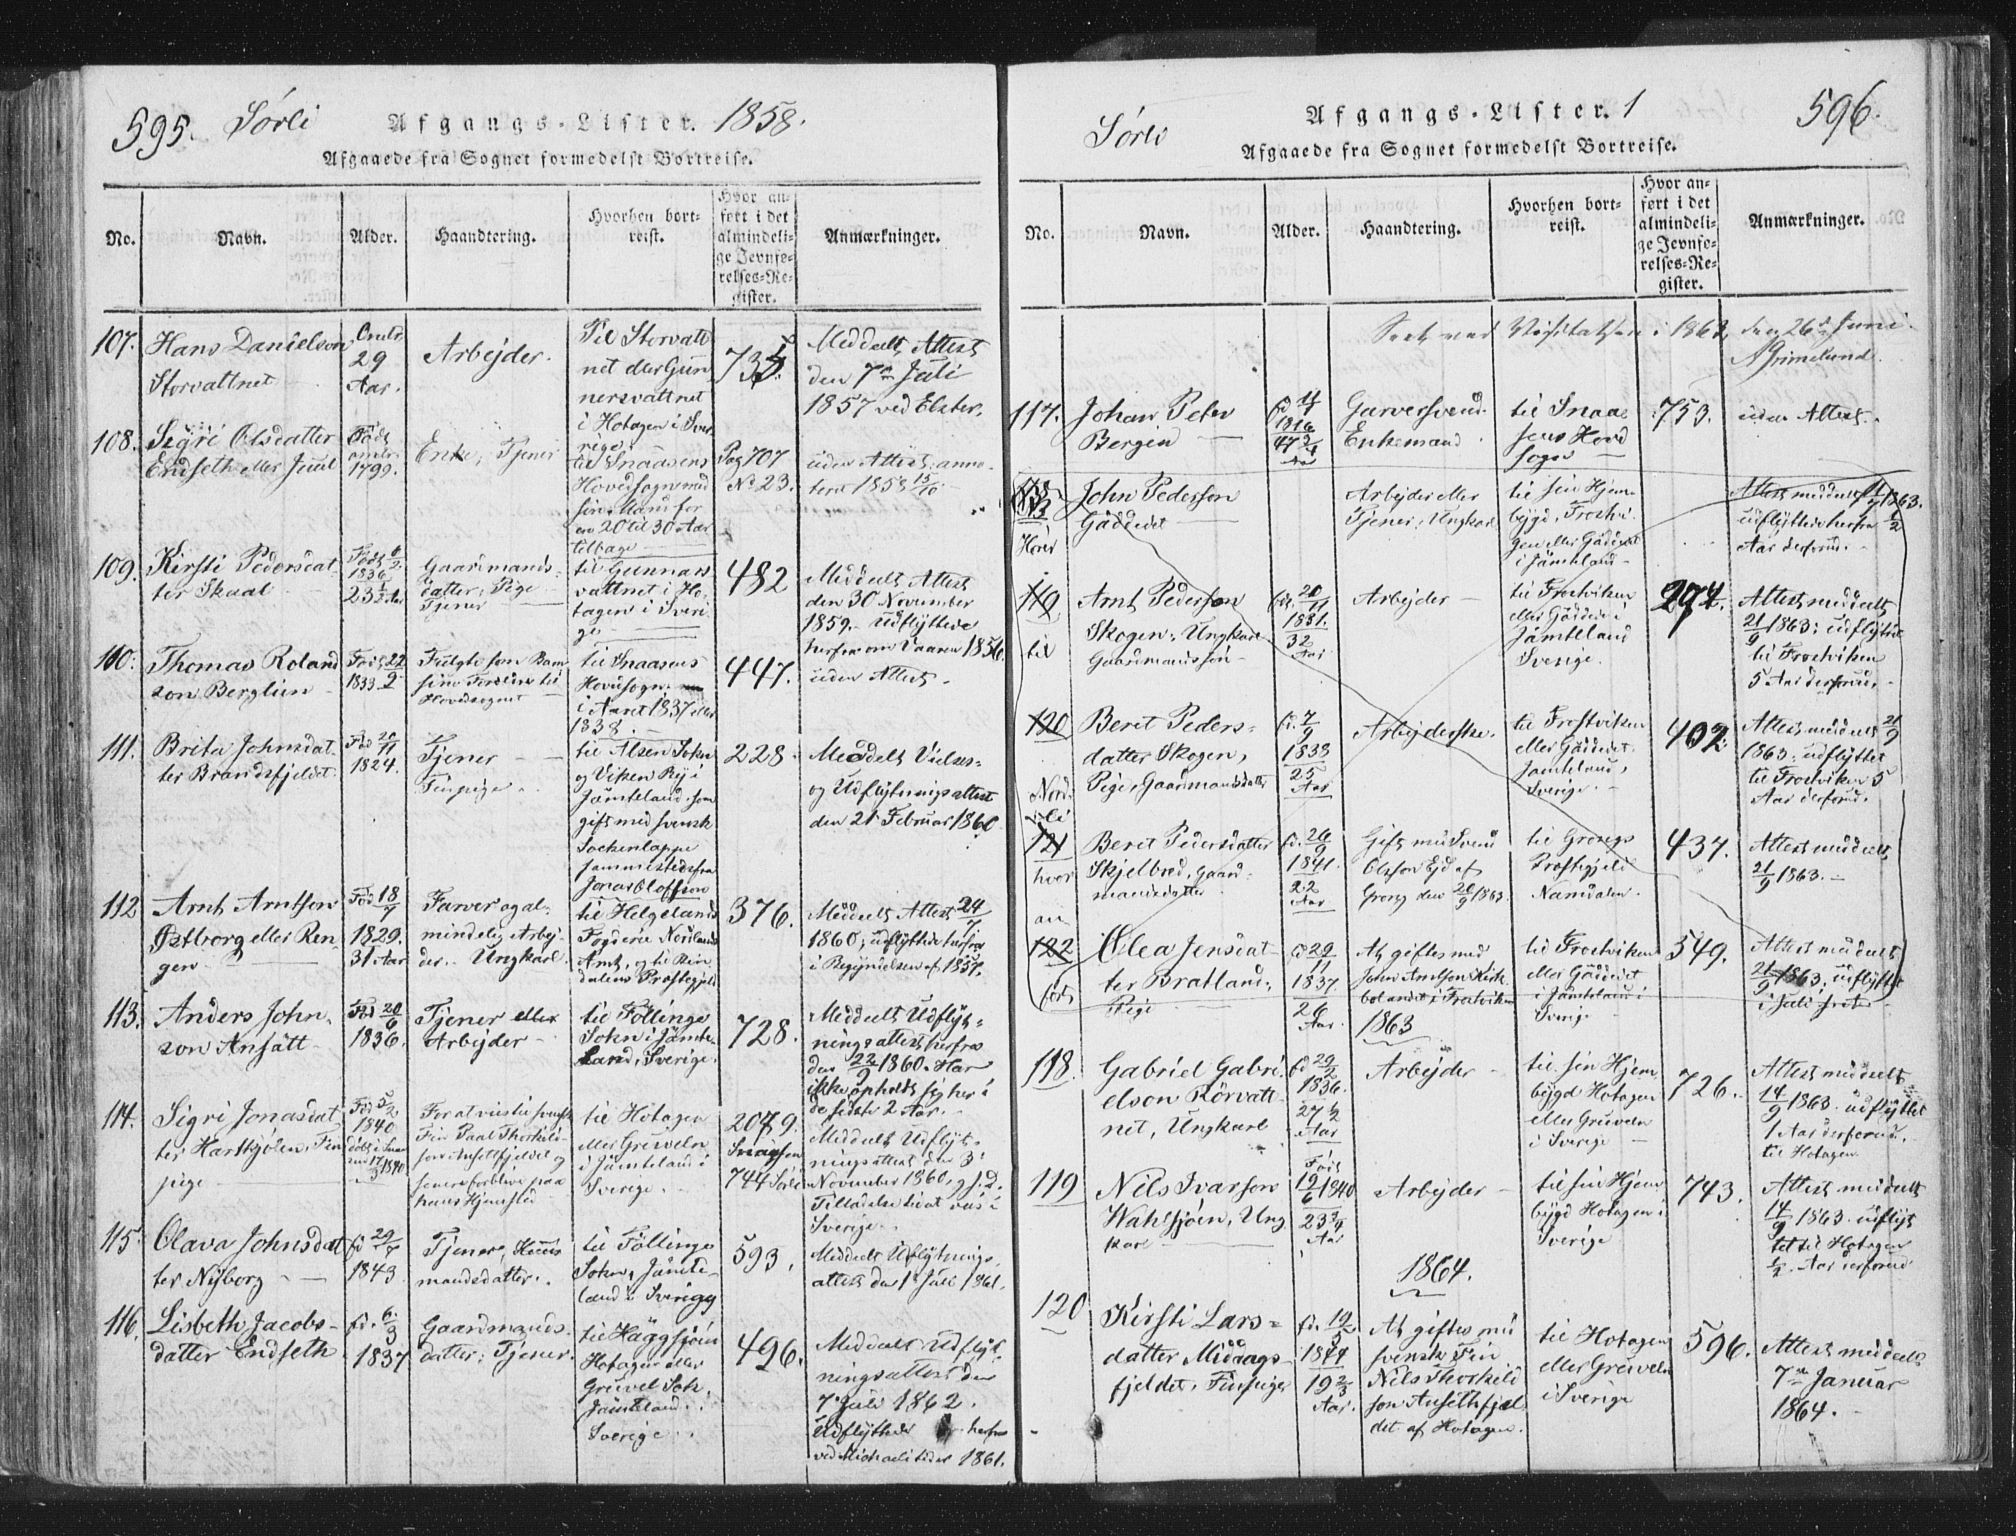 595. Sørli Afgangs-Lister. 1858.
Afgaaede fra Sognet formedelst Bortreise.
No.
Navn.
Alder.
Haandtering.
Hvorhen bort-
reist.
Hvor an-
ført i det
almindeli-
ge Jevnfø-
relses-Re-
gister.
Anmærkninger.
107.
Hans Danielson
Storvattnet
Omtr
29
Aar.
Arbejder.
Til Storvatt
net eller Gun
nersvattnet
i Hotagen i Sver
rige.
735.
Meddeelt Attest
den 7de Juli
1857 ved Elster.
108.
Sigri Olsdatter
Endseth eller Juul
Født
omtr
1799.
Enke, Tjener
til Snaasens
Hovedsogn med
sin Mand for
en 20 til 30 Aar
tilbage
Pag 707
No 23.
uden Attest; anno-
teret 1858 15/10
109.
Kirsti Pedersdat-
ter Skaal
Født
1836
23 1/2 Aar
Gaardmands-
datter, Pige
Tjener
til Gunnars
vattnet i Ho-
tagen i Sveri-
ge
482
Meddeelt Attest
den 30 November
1859. Udflyttede
herfra om Vaaren 1856.
110.
Thomas Roland
son Berglien
Født 22/2
1833
Fulgte som Barn
sine Forældre til
Hovedsognet
til Snaasens
Hovedsogn
i Aaret 1837 eller
1838.
447.
uden Attest.
111.
Brita Johnsdat
ter Brandsfjeldet
Fød 20/11
1824.
Tjener
Finpige
til Alsen Sokn
og Viken By i
Jämteland som
gift med svensk
Sockenlappe
sammestedsfra
Jonas Oloffson
228.
Meddelt Vielses-
og Udflytningsattest
den 21 Februar 1860
112
Arnt Arntson
Østborg eller Ren-
gen
Fød 18/7
1829.
31 Aar
Farver og al-
mindelig Arbej-
der. Ungkarl.
til Helgelands
Fogderie Nordlands
Amt, og til Rin
dalens Præstegjeld
376.
Meddelt Attest 24/7
1860; udflyttede herfra
i Begyndelsen af 1857.
113.
Anders John-
son Ansätt
Fød 20/6
1836.
Tjener eller
Arbejder
til Föllinge
Sokn i Jämte-
land, Sverige.
728.
Meddeelt Udflyt-
ningsattest herfra
den 22/9 1860. Har
ikke opholdt sig her i
de sidste 2 Aar.
114.
Sigri Jonasdat
ter Hartkjølen, Fin
pige
Fød 5/2
1840
For at vies til svensk
Fin Paal Thorkild-
son Ansettfjeldet og
senere forblive paa
hans Hjemsted
til Hotagen
eller Gruveln
i Jämteland i
Sverige.
2079.
Snaasen
744 Sørli
Meddeelt Udflyt-
ningsattest den 3
November 1860, og s. D.
Tilladelse til at vies i
Sverige.
115.
Olava Johnsdat
ter Nyborg
fd 29/7
1843
Tjener, Huus
mandsdatter.
til Föllinge
Sokn, Jämte-
land i Sverige
593.
Meddeelt Udflytnings-
attest den 1 Juli 1861.
116.
Lisbeth Jacobs-
datter Endseth
fd. 6/3
1837
Gaardmands-
datter; Tjener.
til Häggsjøen
Hotagen eller
Gruvel Sok.
Jämteland.
Sverige.
496.
Meddeelt Udflyt-
ningsattest den
7 Juli 1862.
Udflyttede herfra
ved Michaelitider 1861.
Sørli Afgangs-Lister. 1 596.
Afgaaede fra Sognet formedelst Bortreise.
No.
Navn.
Alder.
Haandtering.
Hvorhen bort-
reist.
Hvor an-
ført i det
almindeli-
ge Jevnfø-
relses-Re-
gister.
Anmærkninger.
Seet ved Visitatsen i 1862, den 26de Juni.
AGrimelund.
117.
Johan Peter
Bergin
1816
Garversvend
Enkemand
til Snaa-
sens Hoved
sogn
753.
uden Attest.
118
Hører
John Pederson
Gäddedet
Arbejder eller
Tjener, Ungkarl
til sin Hjem-
bygd, Frostvi-
gen eller Gäddedet
i Jämteland
Attest meddeelt 1863.
udflyttede herfra 1/2
Aar derforud.
119
til
Arnt Pederson
Skogen, Ungkarl
Gaardmandssøn
fd. 20/11
1831.
32
Aar
Arbejder
til Frostviken
eller Gäddede i
Jämteland
Sverige.
274.
Attest meddeelt
21/9 1863; udflyttet
til Frostviken
5 Aar derforud.
120
Nord
li
Beret Peders-
datter Skogen,
Pige, Gaardmandsdatter
fd. 7/9
1838
25
Aar
Arbejderske.
til Frostviken
eller Gäddedet
Jämteland,
Sverige.
402.
Attest meddeelt 21/9
1863; udflyttet
til Frostviken 5
Aar derforud.
121
hvor
Beret Pedersdatter
Skjelbred, Gaard-
mandsdatter
fd. 26/9
1841.
22
Aar
Gift med Svend
Olsson Ejd af
Grong den 20/9 1863.
til Grongs
Præstegjeld
Namdalen.
437.
Attest meddeelt
21/9 1863.
an
122
Olea Jensdat-
ter Bratland,
Pige
fd 29/11
1837.
26
Aar.
At giftes med
John Arntson Kirk
bolandet i Frostviken
1863
til Frostviken
eller Gäddedet
i Jämteland i
Sverige
549.
Attest meddeelt
21/9 1863; udflyttet
i Juli
118.
Gabriel Gabri-
elson Rörvatt-
net, Ungkarl
fd 29/2
1836.
27 1/2
Aar
Arbejder
til sin Hjem
bygd Hotagen
eller Gruveln
i Sverige
726.
Attest meddeelt
14/9 1863. udflyttet
1 Aar derforud.
til Hotagen
119
Nils Ivarson
Wahlsjöen, Ung
karl
Født
19/6 1840
23 1/4
Aar
Arbejder
til sin Hjem
bygd Hotagen i
Sverige
743.
Attest meddeelt
14/9 1863. udflyt
tet til Hotagen
1/2 Aar derforud
1864.
120
Kirsti Lars-
datter Middags-
fjeldet, Finpige
fd. 19/5
1844
19 2/3
Aar.
At giftes med
svensk Fin
Nils Thorkild
son Ansethfjel
det af Hotagen.
til Hotagen
eller Gruveln
i Sverige
596.
Attest meddeelt
7de Januar
1864.